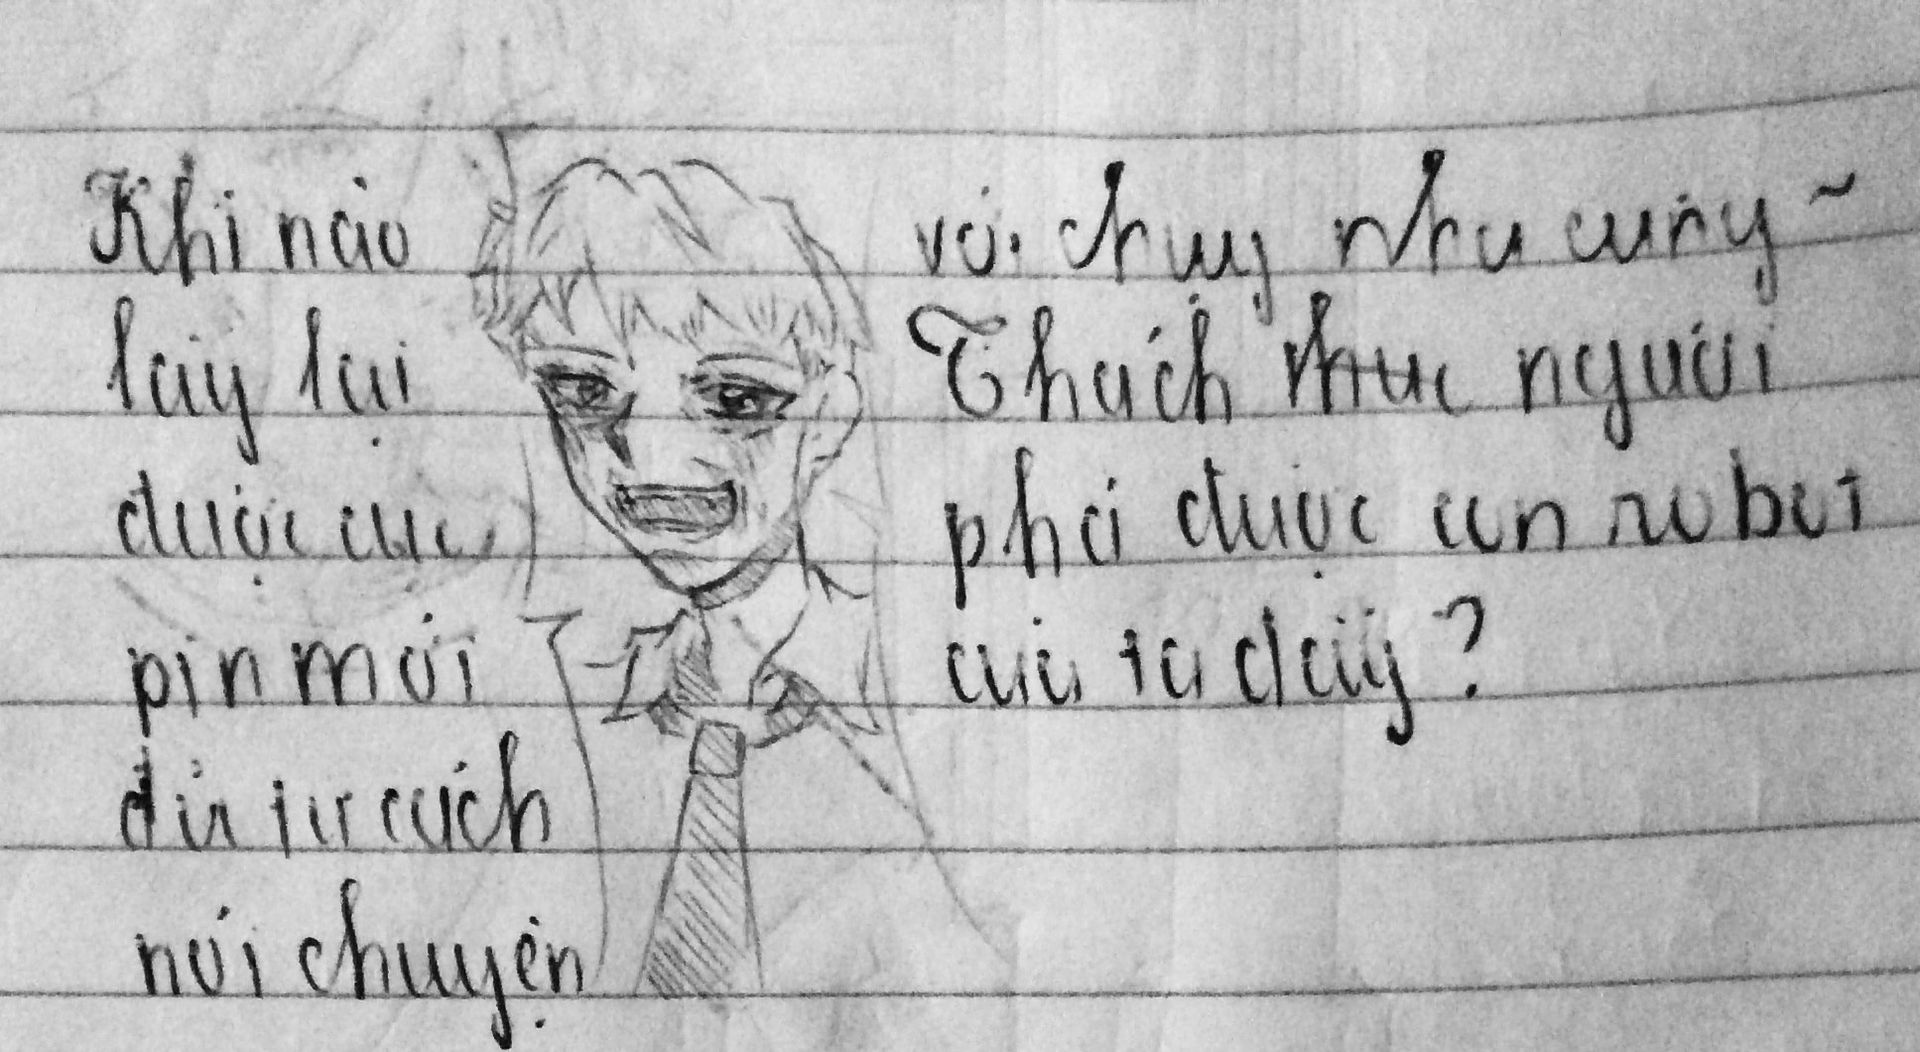 Khi nào
lấy lại
được cục
pin mới
đủ tư cách
nói chuyện
với chụy nha cưng ~
Thách thức người
phá được con robot
của ta đấy?